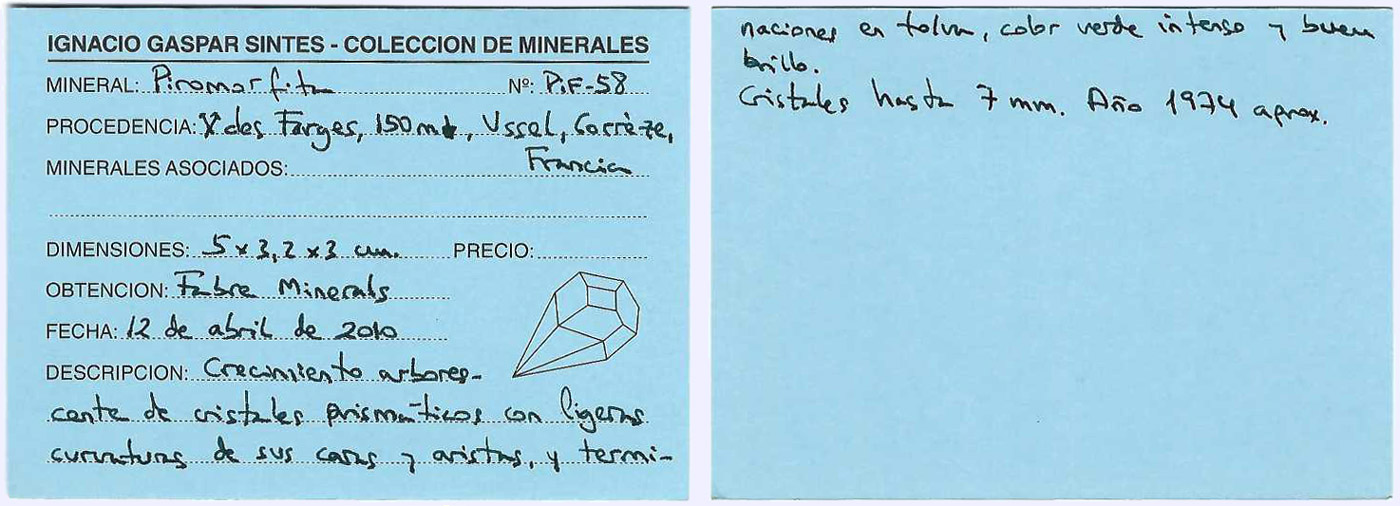 IGNACIO GASPAR SINTES - COLECCION DE MINERALES
MINERAL: Piromorfita Nº: PiF-58
PROCEDENCIA: des Farges, 150 mt, Ussel, Corrèze,
Francia
MINERALES ASOCIADOS:
DIMENSIONES: 5 x 3,2 x 3 cm. PRECIO:
OBTENCION: Fabre Minerals
FECHA: 12 de abril de 2010
DESCRIPCION: Crecimiento arbores-
cente de cristales prismáticos con ligeras
curvaturas de sus caras y aristas, y termi-
naciones en tolva, color verde intenso y buen
brillo.
Cristales hasta 7 mm. Año 1974 aprox.